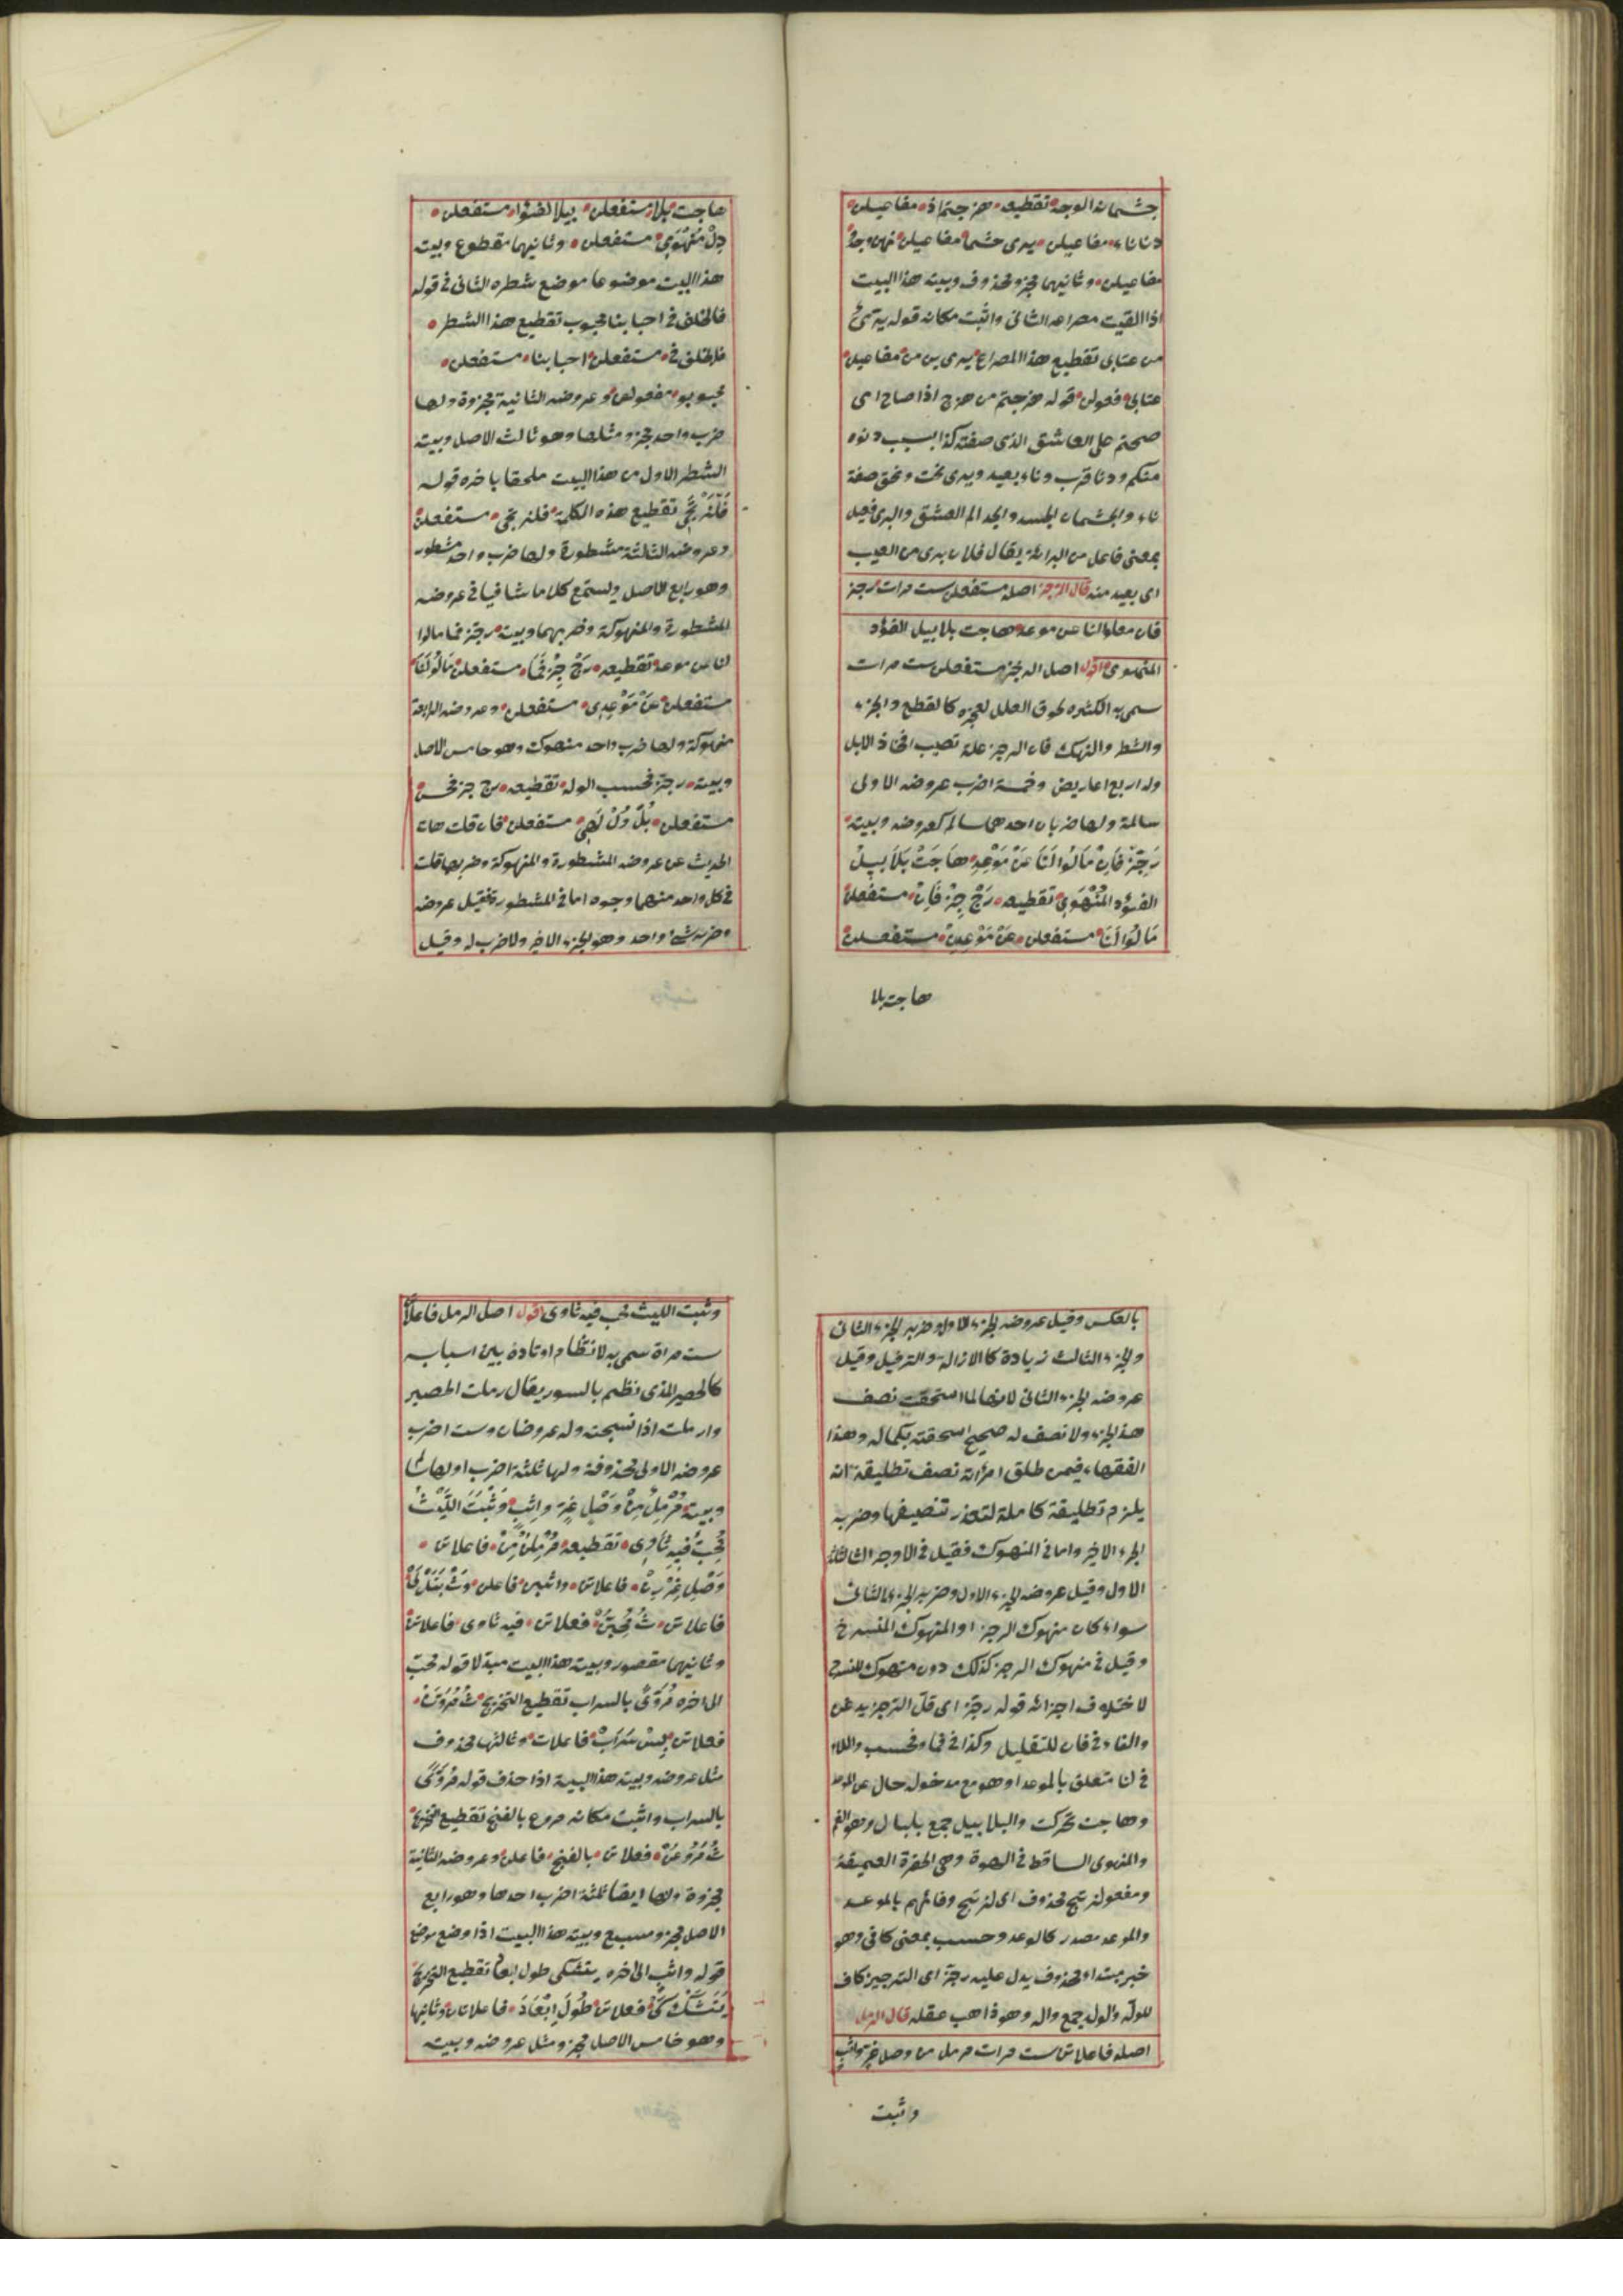 جثمانه الوجد تقطيعه هزجتم اذ مفاعيلن
دنا ناء مفاعيلن يدى جثما مفاعيلن نهن وجدُ
مفاعيلن وثانيهما مجزو محذوف وبيته هذا البيت
اذا القيت مصراعه الثانى واثبت مكانه قوله
من عتابى تقطيع هذا المصراع مفاعيلن
عتابى فعولن قوله هزجتم من هزج اذا صاح اى
صحتم على العاشق الذى صفته كذا بسبب دنوه
منكم ودنا قرب وناء بعيد ويدى نحت ونحق صفة
ناء والجثمان الجسد والوجد الم العشق والبرى فعيل
بمعنى فاعل من البرائة يقال فلان برى من العيب
اى بعيد منه قال الرجز اصله مستفعلن ست مرات رجز
فان مالوا لنا عن موعد هاجت بلا بيل الفؤد
المنهوى اقول اصل الرجز مستفعلن ست مرات
سمى به لكثرة لحوق العلل لعجزه كالقطع والجزء
والشطر والنهك فان الرجز علة تصيب افخاذ الابل
وله اربع اعاريض وخمسة اضرب عروضه الاولى
سالمة ولها ضربان احدهما سالم كعروضه وبيته
رَجِّزْ فَإِنْ مَالُوا لَنَا عَنْ مَوْعِدِ هَاجَتْ بَلَا بِيلُ
الفؤد المُنْهَوِى تقطيعه رَجْ جِزْ فَإِنْ مستفعلن
مَالُوا لَنَا مستفعلن عَنْ مَوْعِدِنْ مستفعلن
هاجت بلا
هاجت بلا مستفعلن بيلا لفؤا مستفعلن
دِلْ مُنْهَوِى مستفعلن وثانيهما مقطوع وبيت
هذا البيت موضوعا موضع شطره الثانى فى قوله
فالخلق فى احبابنا محبوب تقطيع هذا الشطر
فلخلق فى مستفعلن احبابنا مستفعلن
محبوبو مفعولن وعروضه الثانية مجزوة ولها
ضرب واحد مجزو مثلها وهو ثالث الاصل وبيته
الشطر الاول من هذا البيت ملحقا باخره قوله
فَلْتَرْتَجِى تقطيع هذه الكلمة فلترتجى مستفعلن
وعروضه الثالثة مشطورة ولها ضرب واحد مشطور
وهو رابع الاصل وليستمع كلاما شافيا فى عروضه
المشطورة والمنهوكة وضربهما وبيته رجّز فما مالوا
لنا عن موعد تقطيعه رَجْ جِزْ فَمَا مستفعلن مَالُوْ لَنَا
مستفعلن عَنْ مَوْعِدِى مستفعلن وعروضه الرابعة
منهوكة ولها ضرب واحد منهوك وهو خامس الاصل
وبيته رجّز فحسب الوله تقطيعه رج جز فحس
مستفعلن بُلْ وُلْ لَهِى مستفعلن فان قلت هات
الحديث عن عروضه المشطورة والمنهوكة وضربها قلت
فى كل واحد منهما وجوه اما فى المشطور فقيل عروضه
وضربه شئ واحد وهو الجزء الاخير ولا ضرب له وقيل
بالعكس وقيل عروضه الجزء الاول وضربه الجزء الثانى
والجزء الثالث زيادة كالاذالة والترفيل وقيل
عروضه الجزء الثانى لانها لما استحقت نصف
هذا الجزء ولا نصف له صحيح استحقته بكماله وهذا
الفقهاء فيمن طلق امرأته نصف تطليقة انه
يلزم تطليقة كاملة لتعذر تنصيفها وضربه
الجزء الاخير واما فى المنهوك فقيل فى الاوجه الثلاثة
الاول وقيل عروضه الجزء الاول وضربه الجزء الثانى
سواء كان منهوك الرجز او المنهوك المنسرح
وقيل فى منهوك الرجز كذلك دون منهوك المنسرح
لاختلاف اجزائه قوله رجّز اى قل الترجز يد عن
والفاء فى فان للتقليل وكذا فى فما وفحسب واللام
فى لنا متعلق بالموعد او هو مع مدخوله حال عن الموعد
وهاجت تحركت والبلابيل جمع بلبال وهو الغم
والمنهوى الساقط فى الهوة وهى الحفرة العميقة
ومفعول نرتج محذوف اى لنرتج وفائهم بالموعد
والموعد مصدر كالوعد وحسب بمعنى كافى وهو
خبر مبتداء محذوف يدل عليه رجّز اى الترجيز كاف
للوله والوله جمع واله وهو ذاهب عقله قال الرمل
اصله فاعلاتن ست مرات مرمل من وصل غرّ واثب
وثبت
وثبت الليث محب فيه ثاوى اقول اصل الرمل فاعلاتن
ست مراة سمى به لانتظام اوتاده بين اسبابه
كالحصير الذى نظم بالسور يقال رملت الحصير
وارملت اذا نسجته وله عروضان وست اضرب
عروضه الاولى محذوفة ولها ثلثة اضرب اولها
وبيته مُرْمِلٌ مِنْ وَصْلِ غِرٍّ وَاثِبٍ وَثْبَتَ اللَّيْثُ
مُحِبٌّ فِيهِ ثَاوِى تقطيعه مُرْمِلُنْ مِنْ فاعلاتن
وَصْلِ غِرْرِنْ فاعلاتن واثبين فاعلن وَثْ بَتَلْ لَىْ
فاعلاتن ثُ مُحِبْبُنْ فعلاتن فيه ثاوى فاعلاتن
وثانيهما مقصور وبيته هذا البيت مبدلا قوله محب
الى اخره مُرَوَّىً بالسراب تقطيع التخريج ثُ مُرَوْوَنْ
فعلاتن بِسْ سَرَابْ فاعلات وثالثها محذوف
مثل عروضه وبيته هذا البيت اذا حذف قوله مُرَوَّىً
بالسراب واثبت مكانه مروع بالفنج تقطيع التخريج
ثُ مُرَوْوَعْ فعلاتن بالفنج فاعلن وعروضه الثانية
مجزوة ولها ايضا ثلثة اضرب احدها وهو رابع
الاصل مجزو مسبع وبيته هذا البيت اذا وضع موضع
قوله واثب الى اخره يتشكى طول ابعاد تقطيع التخريج
يَتَشَكْ كَىْ فعلاتن طُولَ اِبْعَادْ فاعلاتان وثانيها
وهو خامس الاصل مجزو مثل عروضه وبيته